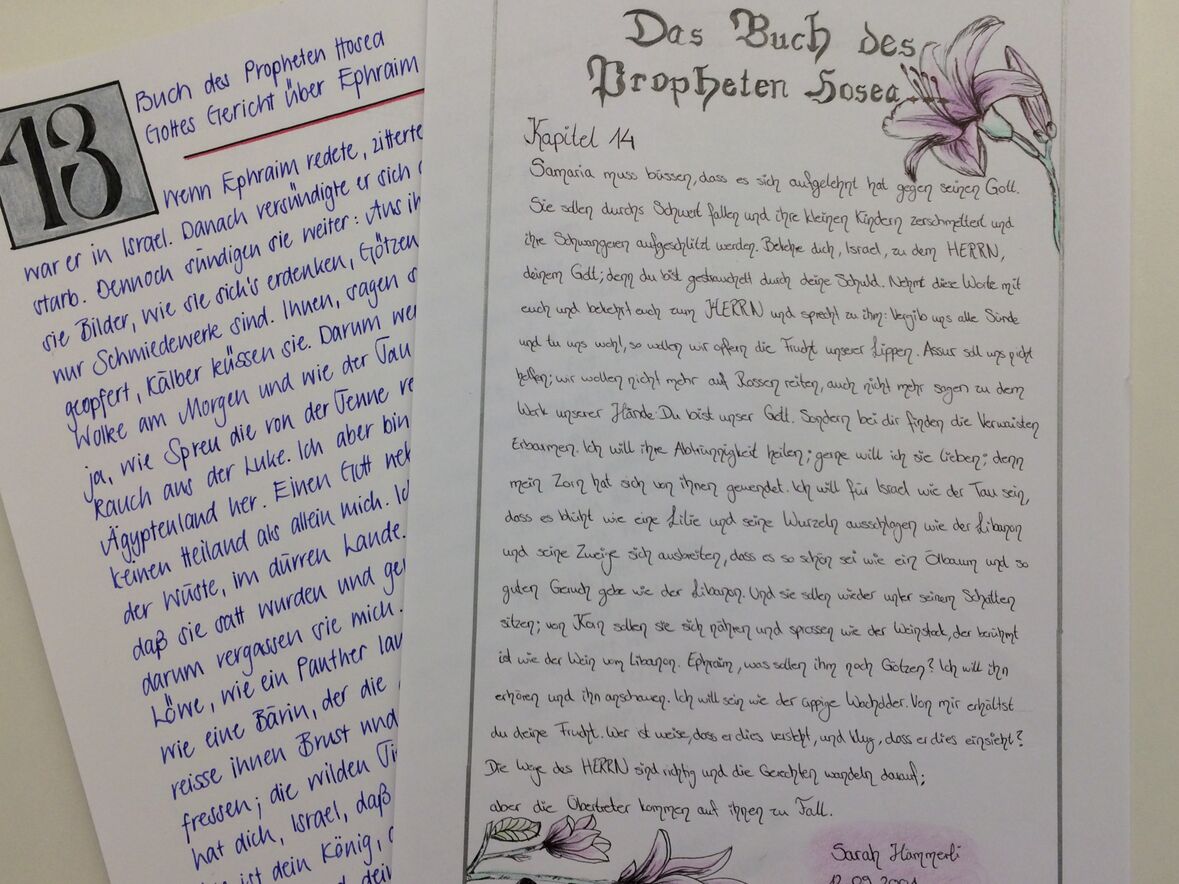 13
Buch des Propheten Hosea
Gottes Gericht über Ephraim
Wenn Ephraim redete, zitterte
war er in Israel. Danach versündigte er sich
starb. Dennoch sündigen sie weiter: Aus
sie Bilder, wie sie sich's erdenken, Götzen
nur Schmiedewerk sind. Ihnen, sagen
geopfert, Kälber küssen sie. Darum
Wolke am Morgen und wie der Tau
ja, wie Spreu die von der Tenne
Rauch aus der Luke. Ich aber bin
Ägyptenland her. Einen Gott
keinen Heiland als allein mich.
der Wüste, im dürren Lande.
daß sie satt wurden und
darum vergassen sie mich.
Löwe, wie ein Panther
wie eine Bärin, der die
reisse ihnen Brust und
fressen; die wilden
hat dich, Israel, daß
ist dein König,
Das Buch des
Propheten Hosea
Kapitel 14
Samaria muss büssen, dass es sich aufgelehnt hat gegen seinen Gott.
Sie sollen durchs Schwert fallen und ihre kleinen Kindern zerschmettert und
ihre Schwangeren aufgeschlitzt werden. Bekehre dich, Israel, zu dem HERRN,
deinem Gott; denn du bist gestrauchelt durch deine Schuld. Nehmt diese Worte mit
euch und bekehrt euch zum HERRN und sprecht zu ihm: Vergib uns alle Sünde
und tu uns wohl, so wollen wir opfern die Frucht unserer Lippen. Assur soll uns nicht
helfen; wir wollen nicht mehr auf Rossen reiten, auch nicht mehr sagen zu dem
Werk unserer Hände: Du bist unser Gott. Sondern bei dir finden die Verwaisten
Erbarmen. Ich will ihre Abtrünnigkeit heilen; gerne will ich sie lieben; denn
mein Zorn hat sich von ihnen gewendet. Ich will für Israel wie der Tau sein,
dass es blüht wie eine Lilie und seine Wurzeln ausschlagen wie der Libanon
und seine Zweige sich ausbreiten, dass es so schön sei wie ein Ölbaum und so
guten Geruch gebe wie der Libanon. Und sie sollen wieder unter seinem Schatten
sitzen; von Korn sollen sie sich nähren und sprossen wie der Weinstock, der berühmt
ist wie der Wein vom Libanon. Ephraim, was sollen ihm noch Götzen? Ich will ihn
erhören und ihn anschauen. Ich will sein wie der üppige Wacholder. Von mir erhältst
du deine Frucht. Wer ist weise, dass er dies versteht, und klug, dass er dies einsieht?
Die Wege des HERRN sind richtig und die Gerechten wandeln darauf;
aber die Übertreter kommen auf ihnen zu Fall.
Sarah Hämmerli